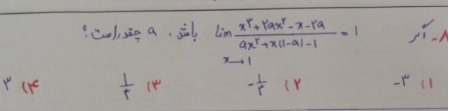 ۸- اگر lim x→1 (x³+2ax²-x-2a)/(ax²+x(1-a)-1) = 1 باشد، a چقدر است؟
۱) -۳ ۲) -1/3 ۳) 1/3 ۴) ۳